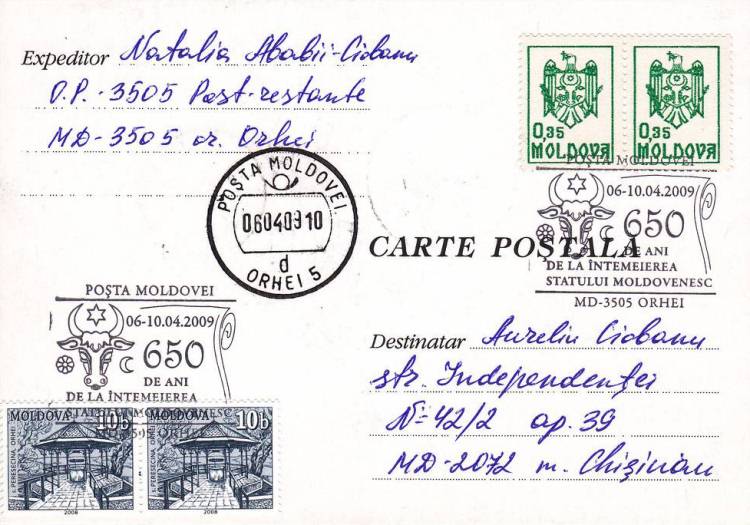 Expeditor Natalia Ababii-Ciobanu
O.P. - 3505 Post-restante
MD-3505 or. Orhei
0,35
MOLDOVA
0,35
MOLDOVA
POȘTA MOLDOVEI
060409 10
d
ORHEI 5
POȘTA MOLDOVEI
06-10.04.2009
650
DE ANI
DE LA ÎNTEMEIEREA
STATULUI MOLDOVENESC
MD-3505 ORHEI
CARTE POȘTALĂ
POȘTA MOLDOVEI
06-10.04.2009
650
DE ANI
DE LA ÎNTEMEIEREA
STATULUI MOLDOVENESC
MD-3505 ORHEI
MOLDOVA 10b
2008
MOLDOVA 10b
2008
Destinatar Aureliu Ciobanu
str. Independenței
N=42/2 ap. 39
MD-2072 m. Chișinău